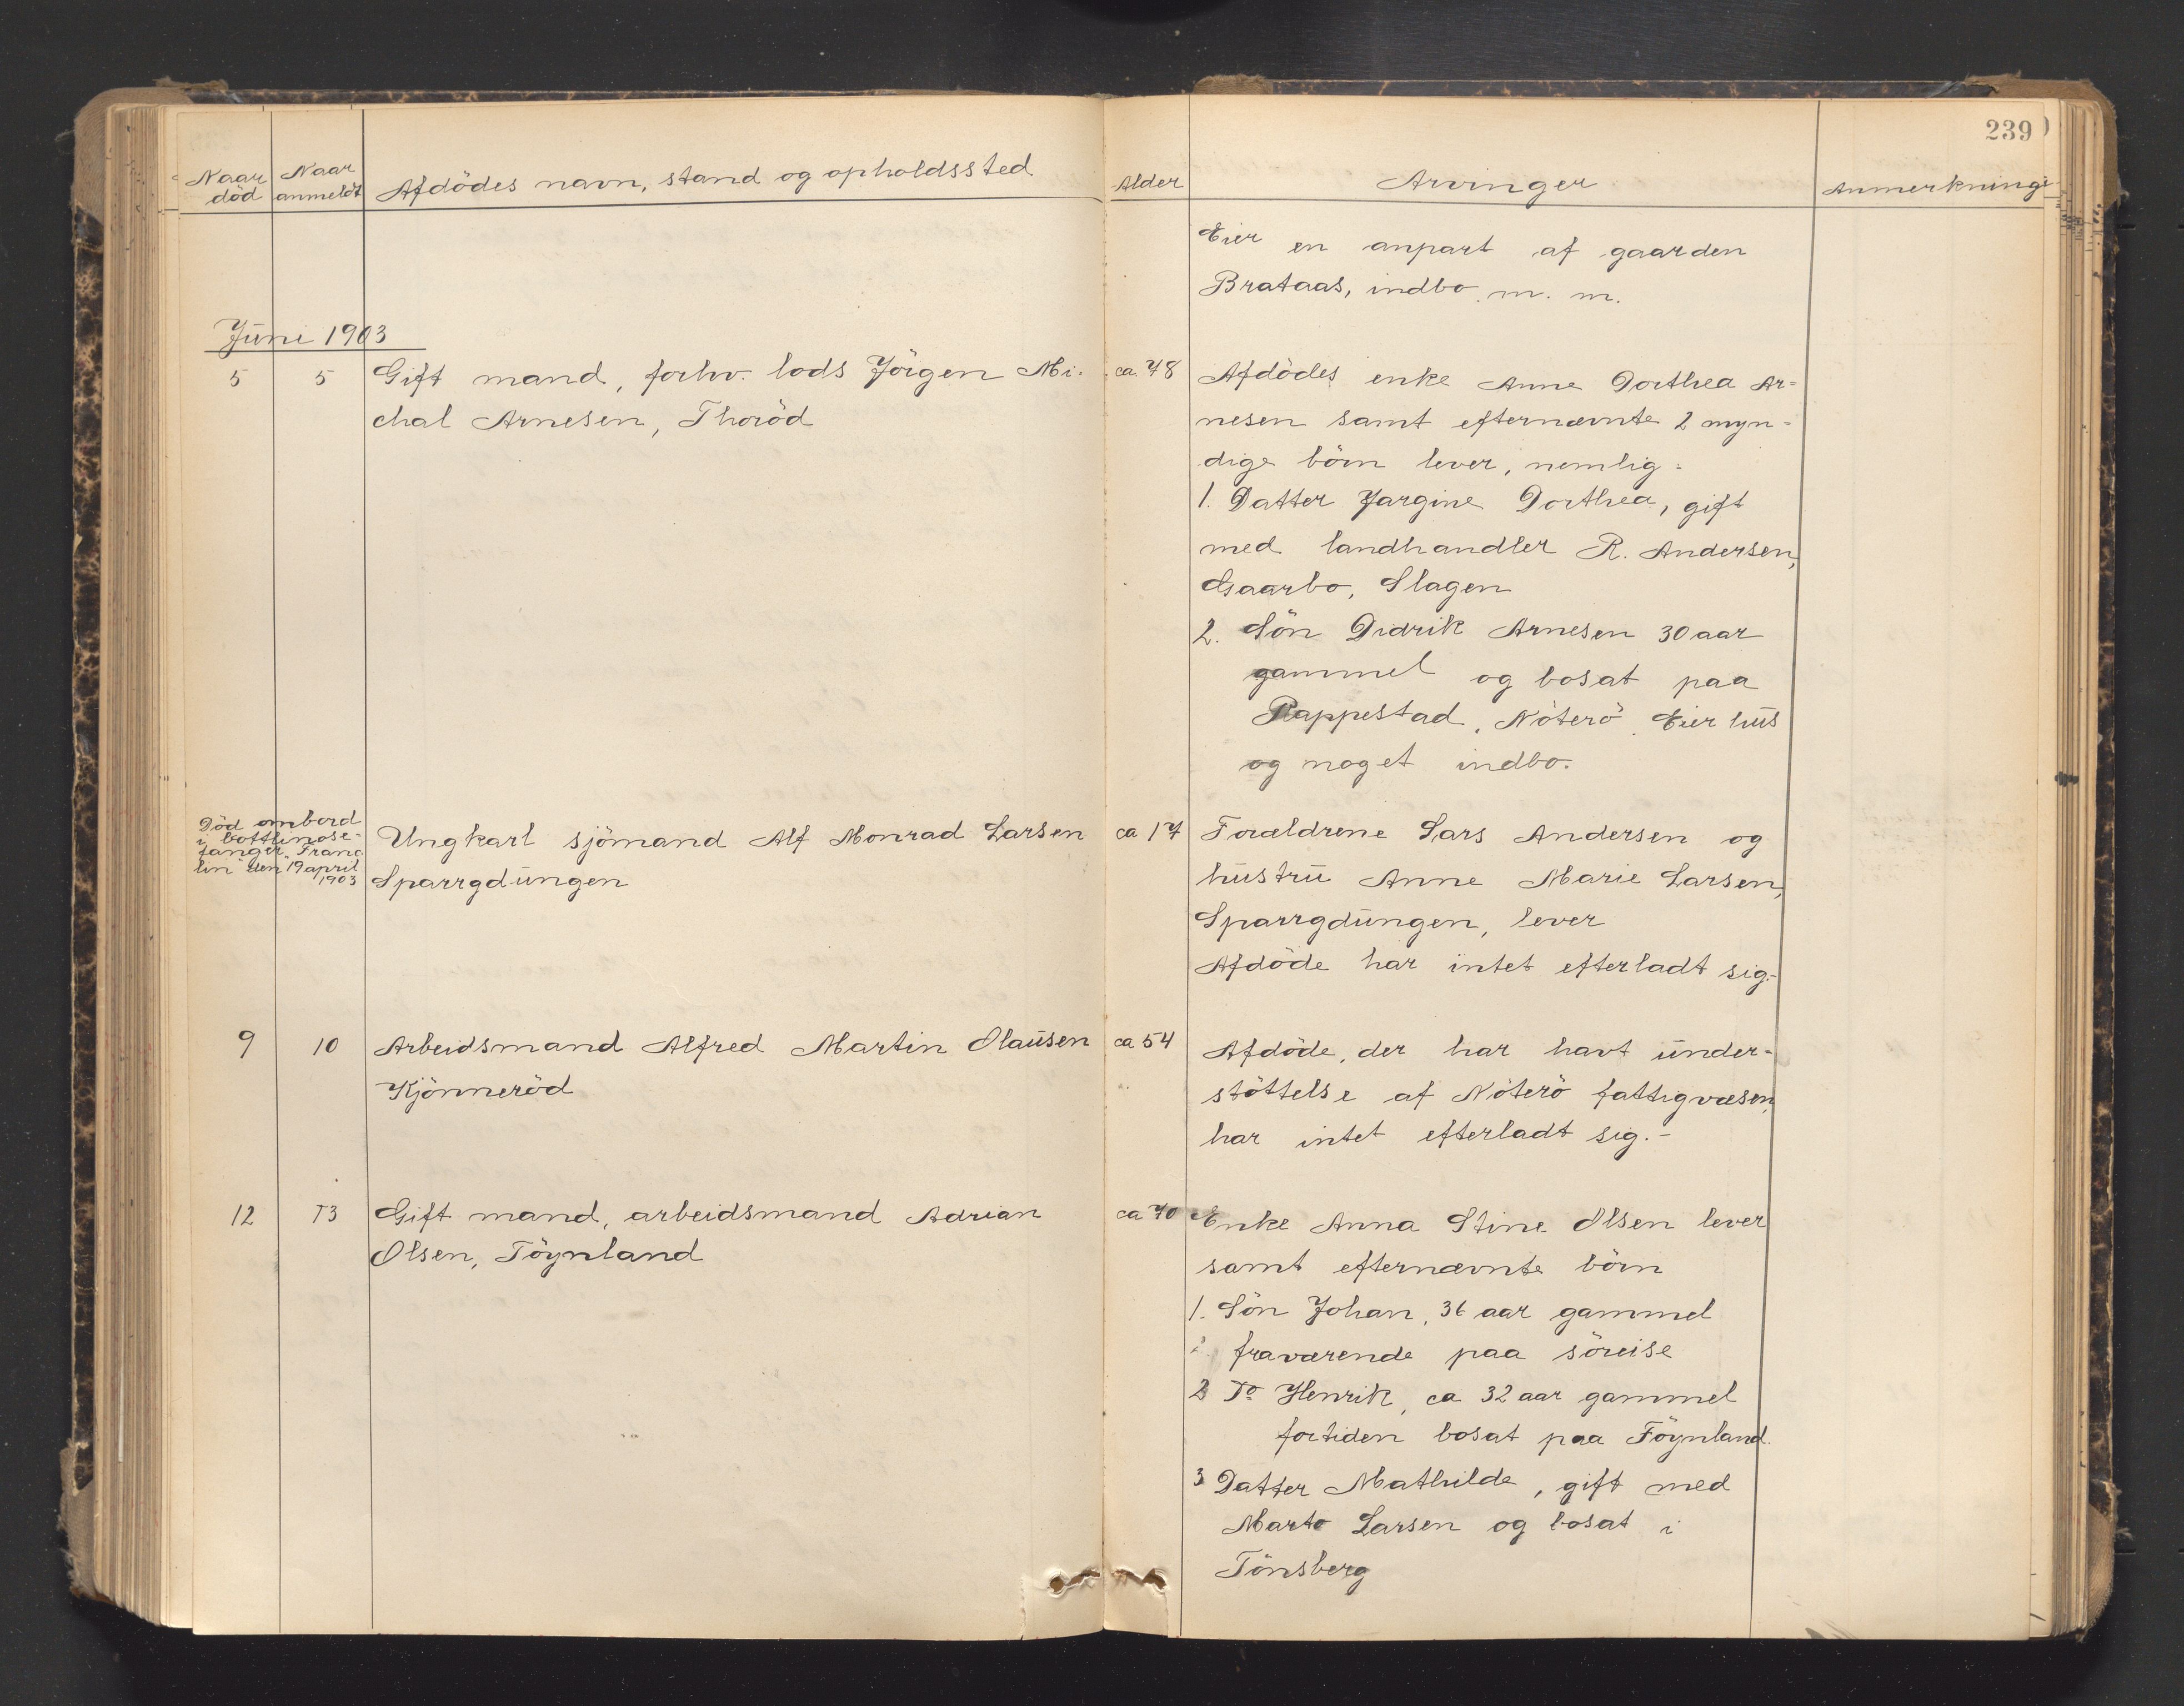 239
Naar død
Naar anmeldt
Afdödes navn, stand og opholdssted
Alder
Arvinger
Anmerkninge
Eier en anpart af gaarden
Brataas, indbo m. m.
Juni 1903
5 5 Gift mand, forhv. lods Jörgen Mi-
chal Arnesen, Thoröd
ca. 78
Afdödes enke Anne Dorthea Ar=
nesen samt efternævnte 2 myn-
dige börn lever, nemlig:
1. Datter Jargine Dorthea, gift
med landhandler R. Andersen,
Gaarbo, Slagen
2. Sön Didrik Arnesen 30 aar
gammel og bosat paa
Rappestad, Nöterö. Eier hus
og noget indbo.
Död ombord
i bottlinose-
fanger "Franc
lin" den 19 april
1903
Ungkarl sjömand Alf Monrad Larsen
Sparrgdungen
ca 17
Forældrene Lars Andersen og
hustru Anne Marie Larsen,
Sparrgdungen, lever
Afdöde har intet efterladt sig.-
9 10 Arbeidsmand Alfred Martin Olausen
Kjönneröd
ca 54
Afdöde, der har havt under-
stöttelse af Nöterö fattigvæsen,
har intet efterladt sig.-
12 13 Gift mand, arbeidsmand Adrian
Olsen, Föynland
ca 70
Enke Anna Stine Olsen lever
samt efternævnte börn
1. Sön Johan, 36 aar gammel
fraværende paa söreise
2 Do Henrik, ca 32 aar gammel
fortiden bosat paa Föynland.
3 Datter Mathilde, gift med
Marto Larsen og bosat i
Tönsberg